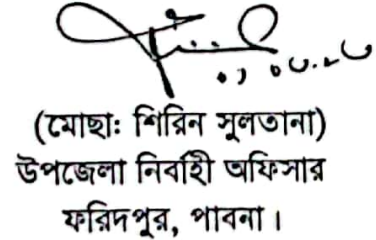 (মোছাঃ শিরিন সুলতানা)
উপজেলা নির্বাহী অফিসার
ফরিদপুর, পাবনা।